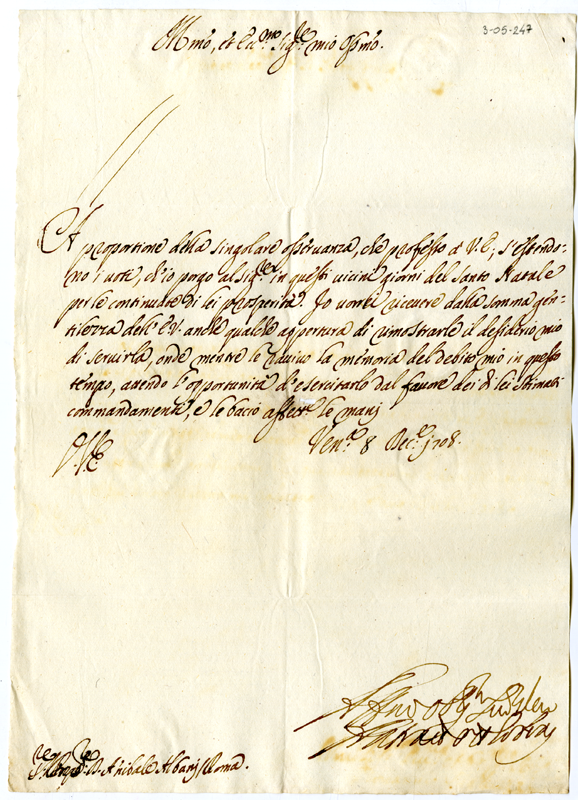 3-05-247
Ill.mo, et Ecc.mo Sig.re mio Oss.mo
A proportione della singolare osseruanza, che professo à V.E; s'estendo-
no i uoti, ch'io porgo al Sig.re in questi uicini giorni del Santo Natale
per le continuate di lei prosperità. Io uorrei riceuere dalla somma gen-
tilezza dell'E.V. anche qualche appertura di rimostrarle il desiderio mio
di seruirla, onde mentre le rauiuo la memoria del debito mio in questo
tempo, attendo l'opportunità d'esercitarlo dal fauore dei di lei stimati
commandamenti, e le bacio affett.e le mani
V.E. Ven.a 8 Dec.e 1708.
Aff.mo
D. Anibale Albani Roma.